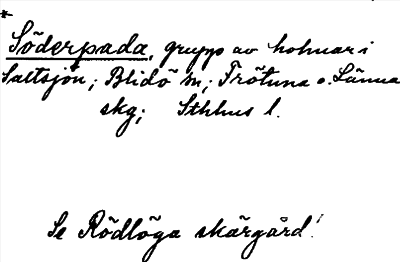 * Söderpada, grupp av holmar i
Saltsjön; Blidö sn; Frötuna o. Länna
skg; Sthlms l.
Se Rödlöga skärgård!